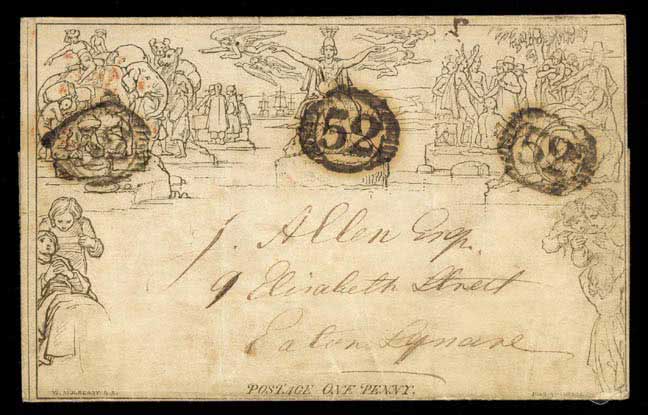 52
52
J. Allen Esq.
9 Elizabeth Street
Eaton Square
POSTAGE ONE PENNY.
W. MULREADY. R.A.